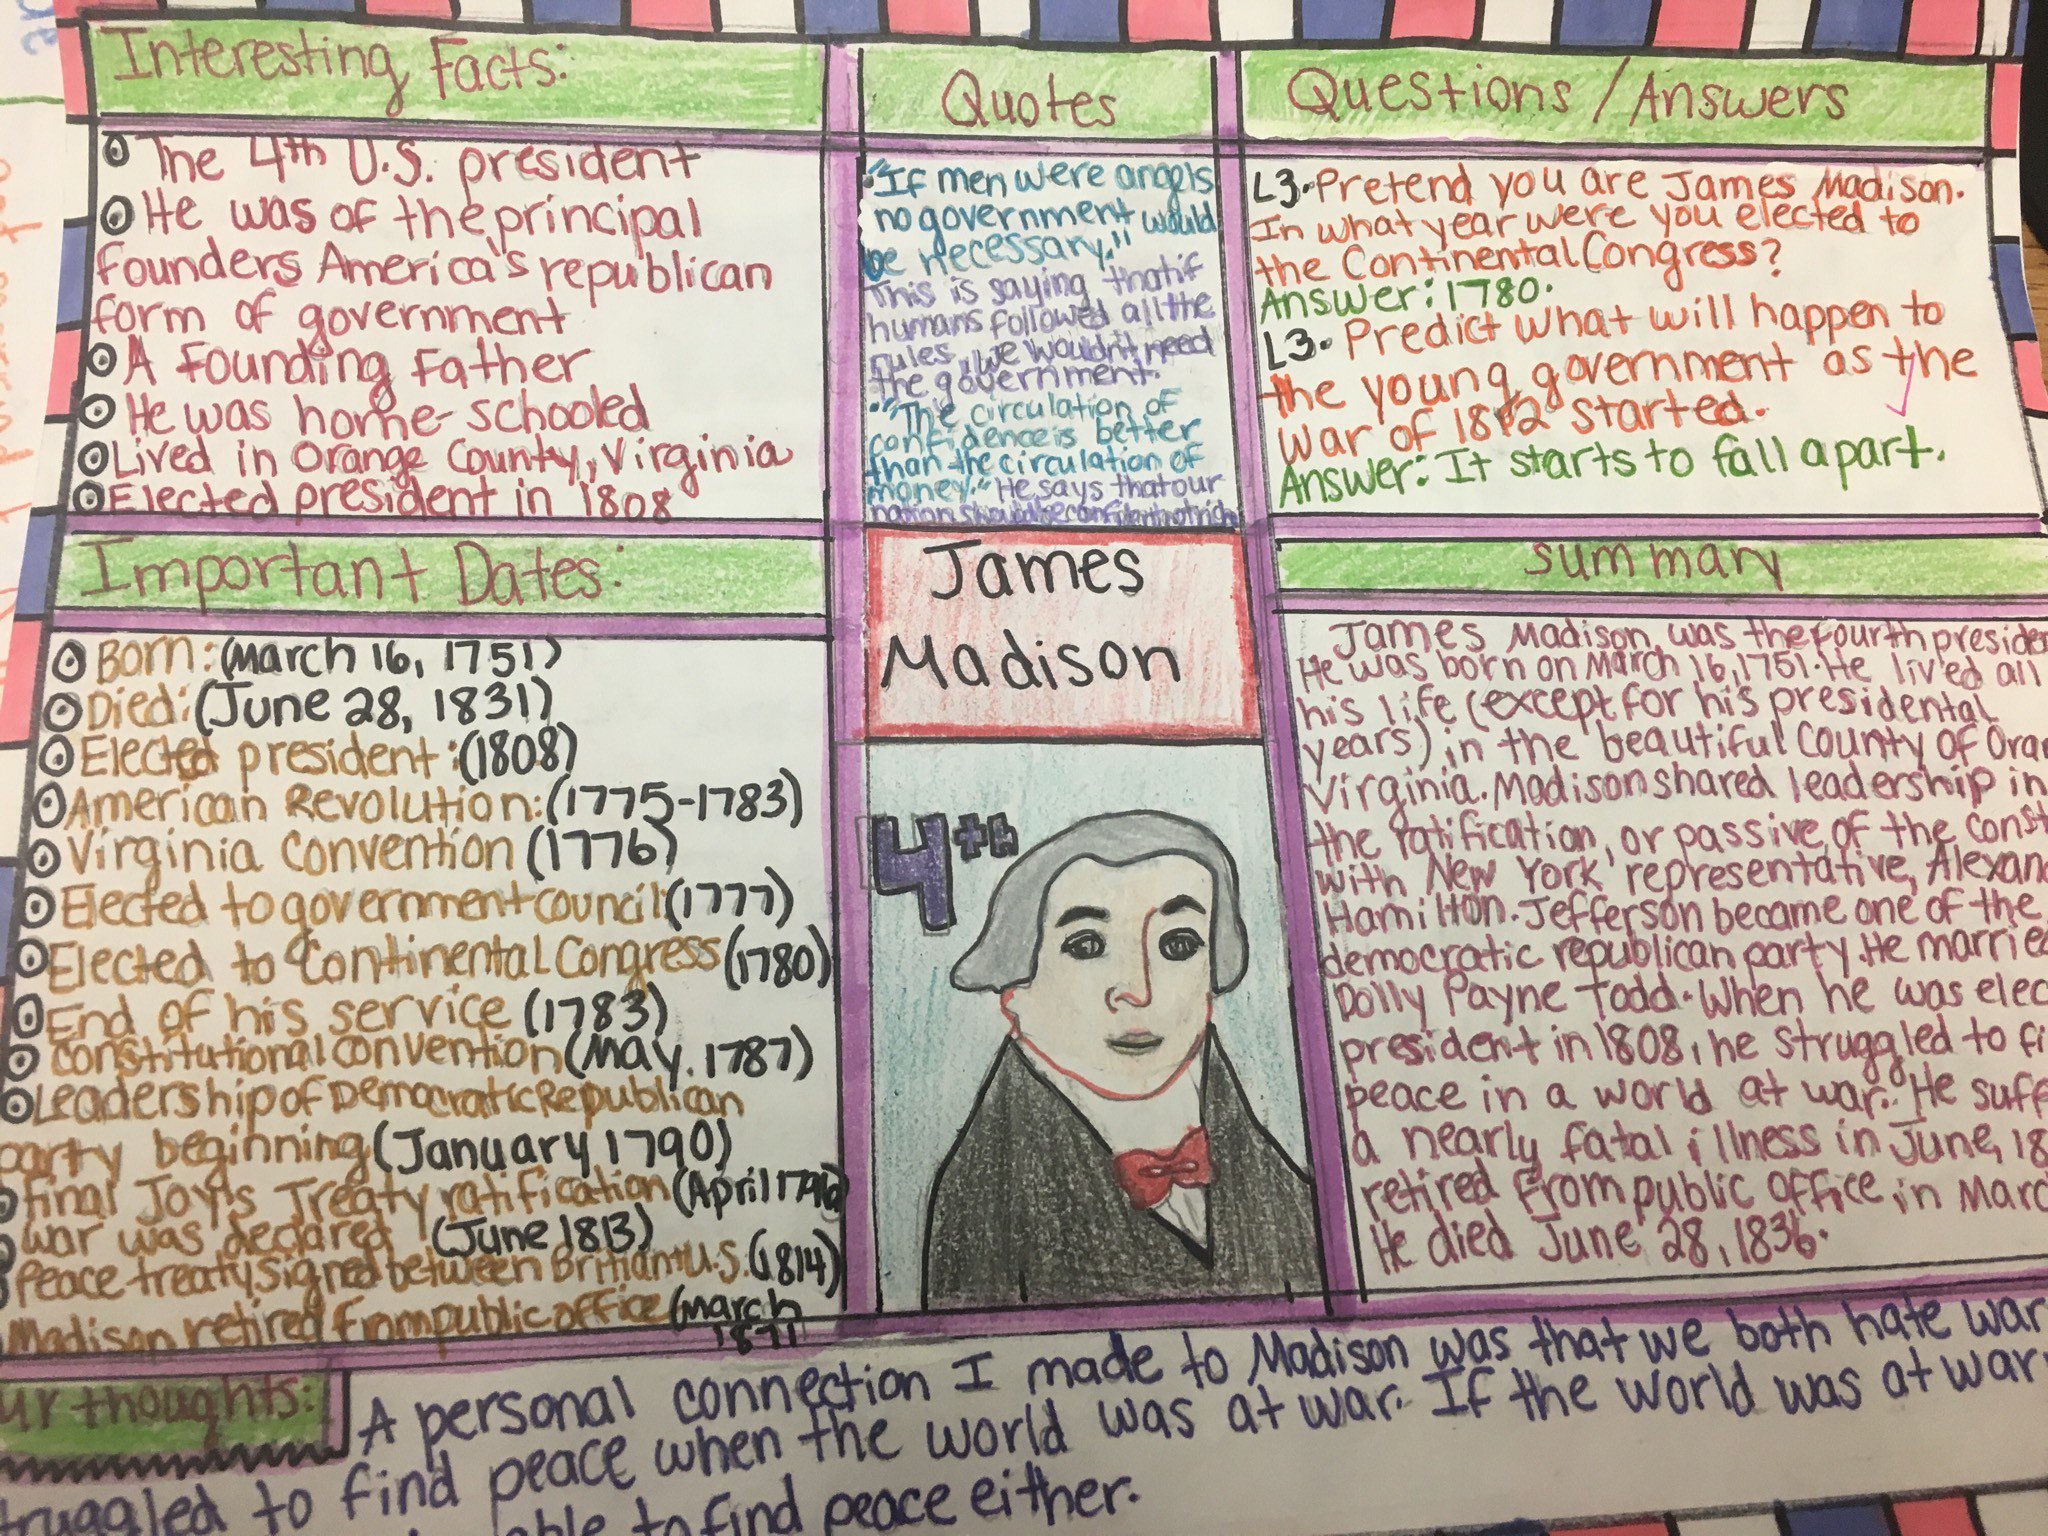 Interesting Facts:
The 4th U.S. president
He was of the principal
founders America's republican
form of government
A Founding Father
He was home-schooled
Lived in Orange County, Virginia
Elected president in 1808
Quotes
"If men were angels
no government would
be necessary."
This is saying that if
humans followed all the
rules, we wouldn't need
the government.
"The circulation of
confidence is better
than the circulation of
money." He says that our
nation should be confident not rich
Questions/Answers
L3. Pretend you are James Madison.
In what year were you elected to
the Continental Congress?
Answer: 1780.
L3. Predict what will happen to
the young government as the
War of 1812 started.
Answer: It starts to fall apart.
Important Dates:
Born: (March 16, 1751)
Died: (June 28, 1831)
Elected president: (1808)
American Revolution: (1775-1783)
Virginia Convention (1776)
Elected to government council: (1777)
Elected to Continental Congress (1780)
End of his service (1783)
Constitutional convention (May, 1787)
Leadership of Democratic Republican
party beginning (January 1790)
final Joy's Treaty ratification (April 1796)
war was declared (June 1813)
Peace treaty signed between Britian + U.S. (1814)
Madison retired from public office (March
James
Madison
4th
summary
James Madison was the fourth
He was born on March 16, 1751. He lived all
his life (except for his presidential
years) in the beautiful County of
Virginia. Madison shared leadership in
the ratification, or passive, of the
with New York representative,
Hamilton. Jefferson became one of the
democratic republican party. He
Dolly Payne Todd. When he was
president in 1808, he struggled to
peace in a world at war. He
a nearly fatal illness in June,
retired from public office in
He died June 28, 1836.
thoughts:
A personal connection I made to Madison was that we both hate war
to find peace when the world was at war. If the world was at war
to find peace either.